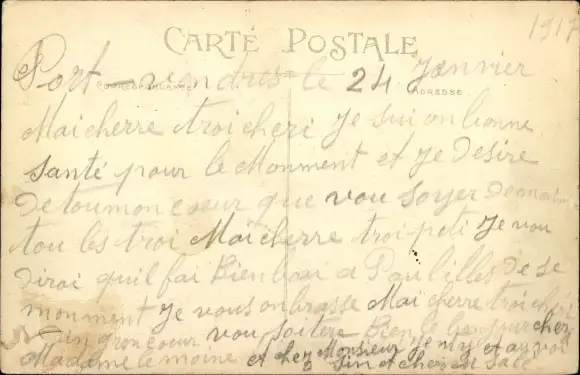 1917
CARTE POSTALE
CORRESPONDANCE
ADRESSE
Port-vendres le 24 Janvier
Maicherre troicheri Je sui onbonne
santé pour le Monment et Je Desire
Detoumon coeur que vou soyer De
tou les troi Maicherre troi peti Je vou
Diroi quil fai Bien a Paulilles De se
monment Je vous onbrasse Maicherre troicheri
gron coeur vou Bien le chez
Madame le moine et chez Monsieur